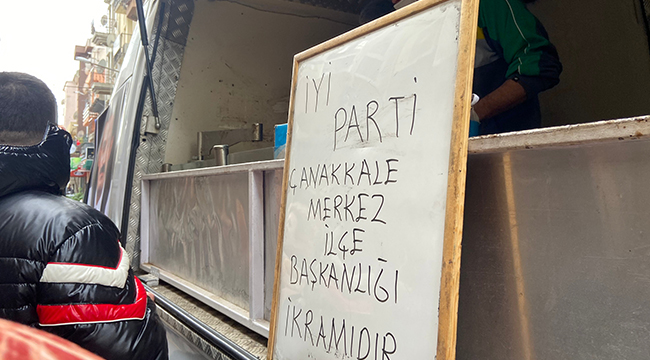 İYİ
PARTİ
ÇANAKKALE
MERKEZ
İLÇE
BAŞKANLIĞI
İKRAMIDIR